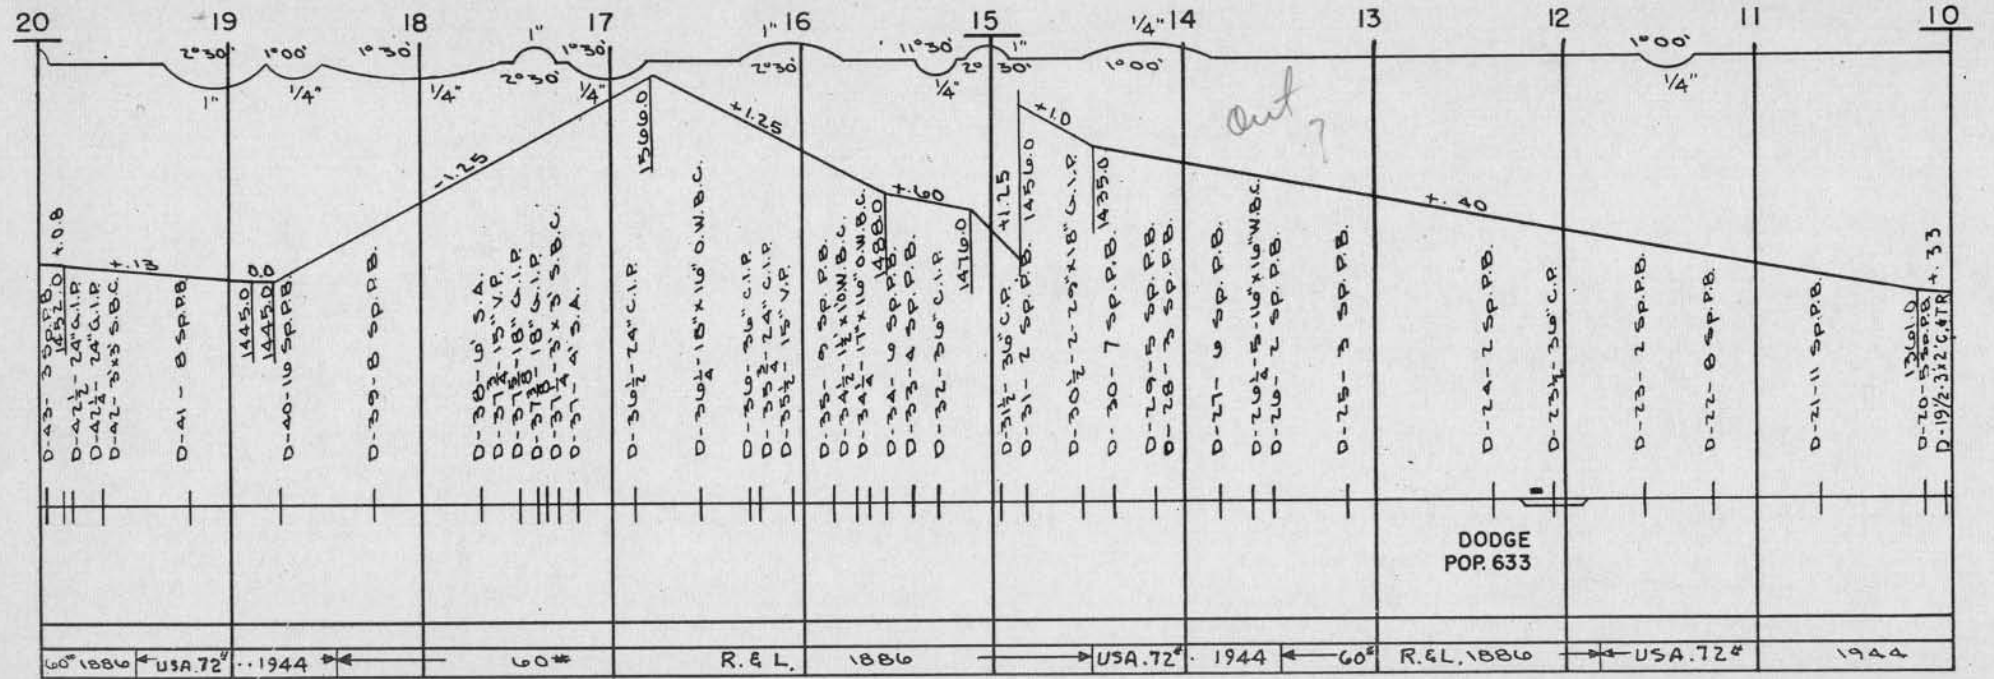 20 19 18 17 16 15 14 13 12 11 10
2°30' 1°00' 1°30' 1" 1°30' 1" 11°30' 1" 1/4" 1°00'
1" 1/4" 1/4" 2°30' 1/4" 2°30' 1/4" 2°30' 1°00' 1/4"
out ?
+.08 +.13 0.0 -1.25 +1.25 +.60 +1.25 +1.0 +.40 +.33
1452.0
1445.0
1445.0
1566.0
1488.0
1476.0
1456.0
1435.0
1361.0
D-43- 3 Sp.P.B.
D-42½- 24" G.I.P.
D-42¼- 24" G.I.P.
D-42- 3'x3' S.B.C.
D-41- 8 Sp.P.B.
D-40-16 Sp.P.B.
D-39-8 Sp.P.B.
D-38-6' S.A.
D-37¾-15" V.P.
D-37⅝-18" G.I.P.
D-37⅜-18" G.I.P.
D-37¼-3'x3' S.B.C.
D-37-4' S.A.
D-36½-24" C.I.P.
D-36¼-18" x 16" O.W.B.C.
D-36-36" C.I.P.
D-35¾-24" C.I.P.
D-35½-15" V.P.
D-35-9 Sp.P.B.
D-34½-1½'x1' O.W.B.C.
D-34¼-17"x16" O.W.B.C.
D-34-6 Sp.P.B.
D-33-4 Sp.P.B.
D-32-36" C.I.P.
D-31½-36" C.P.
D-31-2 Sp.P.B.
D-30½-2-29"x18" G.I.P.
D-30-7 Sp.P.B.
D-29-5 Sp.P.B.
D-28-3 Sp.P.B.
D-27-6 Sp.P.B.
D-26¼-5-16"x16" W.B.C.
D-26-2 Sp.P.B.
D-25-3 Sp.P.B.
D-24-2 Sp.P.B.
D-23½-36" C.P.
D-23-2 Sp.P.B.
D-22-8 Sp.P.B.
D-21-11 Sp.P.B.
D-20-5 Sp.P.B.
D-19½-3'x2' C.&T.R.
DODGE
POP. 633
60# 1886 USA.72# 1944 60# R.& L. 1886 USA.72# 1944 60# R.&L.1886 USA.72# 1944